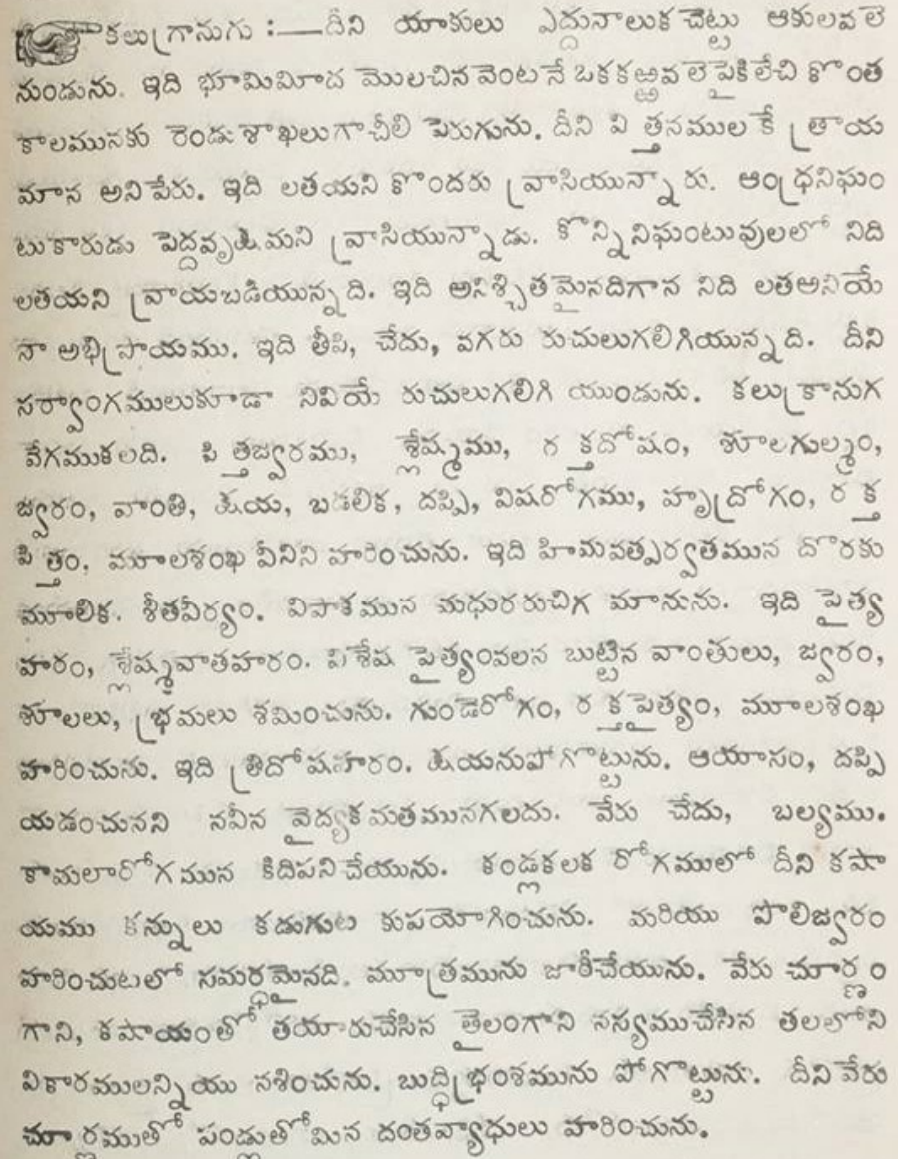 కలుగ్రానుగు :—దీని యాకులు ఎద్దునాలుక చెట్టు ఆకులవలె
నుండును. ఇది భూమిమీద మొలచిన వెంటనే ఒకకఱ్ఱవలెపైకిలేచి కొంత
కాలమునకు రెండు శాఖలుగాచీలి పెరుగును. దీని విత్తనములకే త్రాయ
మాన అనిపేరు. ఇది లతయని కొందరు వ్రాసియున్నారు. ఆంధ్రనిఘం
టుకారుడు పెద్దవృక్షమని వ్రాసియున్నాడు. కొన్నినిఘంటువులలో నిది
లతయని వ్రాయబడియున్నది. ఇది అనిశ్చితమైనదిగాన నిది లతఅనియే
నా అభిప్రాయము. ఇది తీపి, చేదు, వగరు రుచులుగలిగియున్నది. దీని
సర్వాంగములుకూడా నివియే రుచులుగలిగి యుండును. కలుక్రానుగ
వేగముకలది. పిత్తజ్వరము, శ్లేష్మము, రక్తదోషం, శూలగుల్మం,
జ్వరం, వాంతి, క్షయ, బడలిక, దప్పి, విషరోగము, హృద్రోగం, రక్త
పిత్తం, మూలశంఖ వీనిని హరించును. ఇది హిమవత్పర్వతమున దొరకు
మూలిక. శీతవీర్యం. విపాకమున మధురరుచిగ మానును. ఇది పైత్య
హరం, శ్లేష్మవాతహరం. విశేష పైత్యంవలన బుట్టిన వాంతులు, జ్వరం,
శూలలు, భ్రమలు శమించును. గుండెరోగం, రక్తపైత్యం, మూలశంఖ
హరించును. ఇది త్రిదోషహరం. క్షయనుపోగొట్టును. ఆయాసం, దప్పి
యడంచునని నవీన వైద్యకమతమునగలదు. వేరు చేదు, బల్యము.
కామలారోగమున కిదిపనిచేయును. కండ్లకలక రోగములో దీని కషా
యము కన్నులు కడుగుట కుపయోగించును. మరియు పొలిజ్వరం
హరించుటలో సమర్ధమైనది. మూత్రమును జారీచేయును. వేరు చూర్ణం
గాని, కషాయంతో తయారుచేసిన తైలంగాని నస్యముచేసిన తలలోని
వికారములన్నియు నశించును. బుద్ధిభ్రంశమును పోగొట్టును. దీనివేరు
చూర్ణముతో పండ్లుతోమిన దంతవ్యాధులు హరించును.